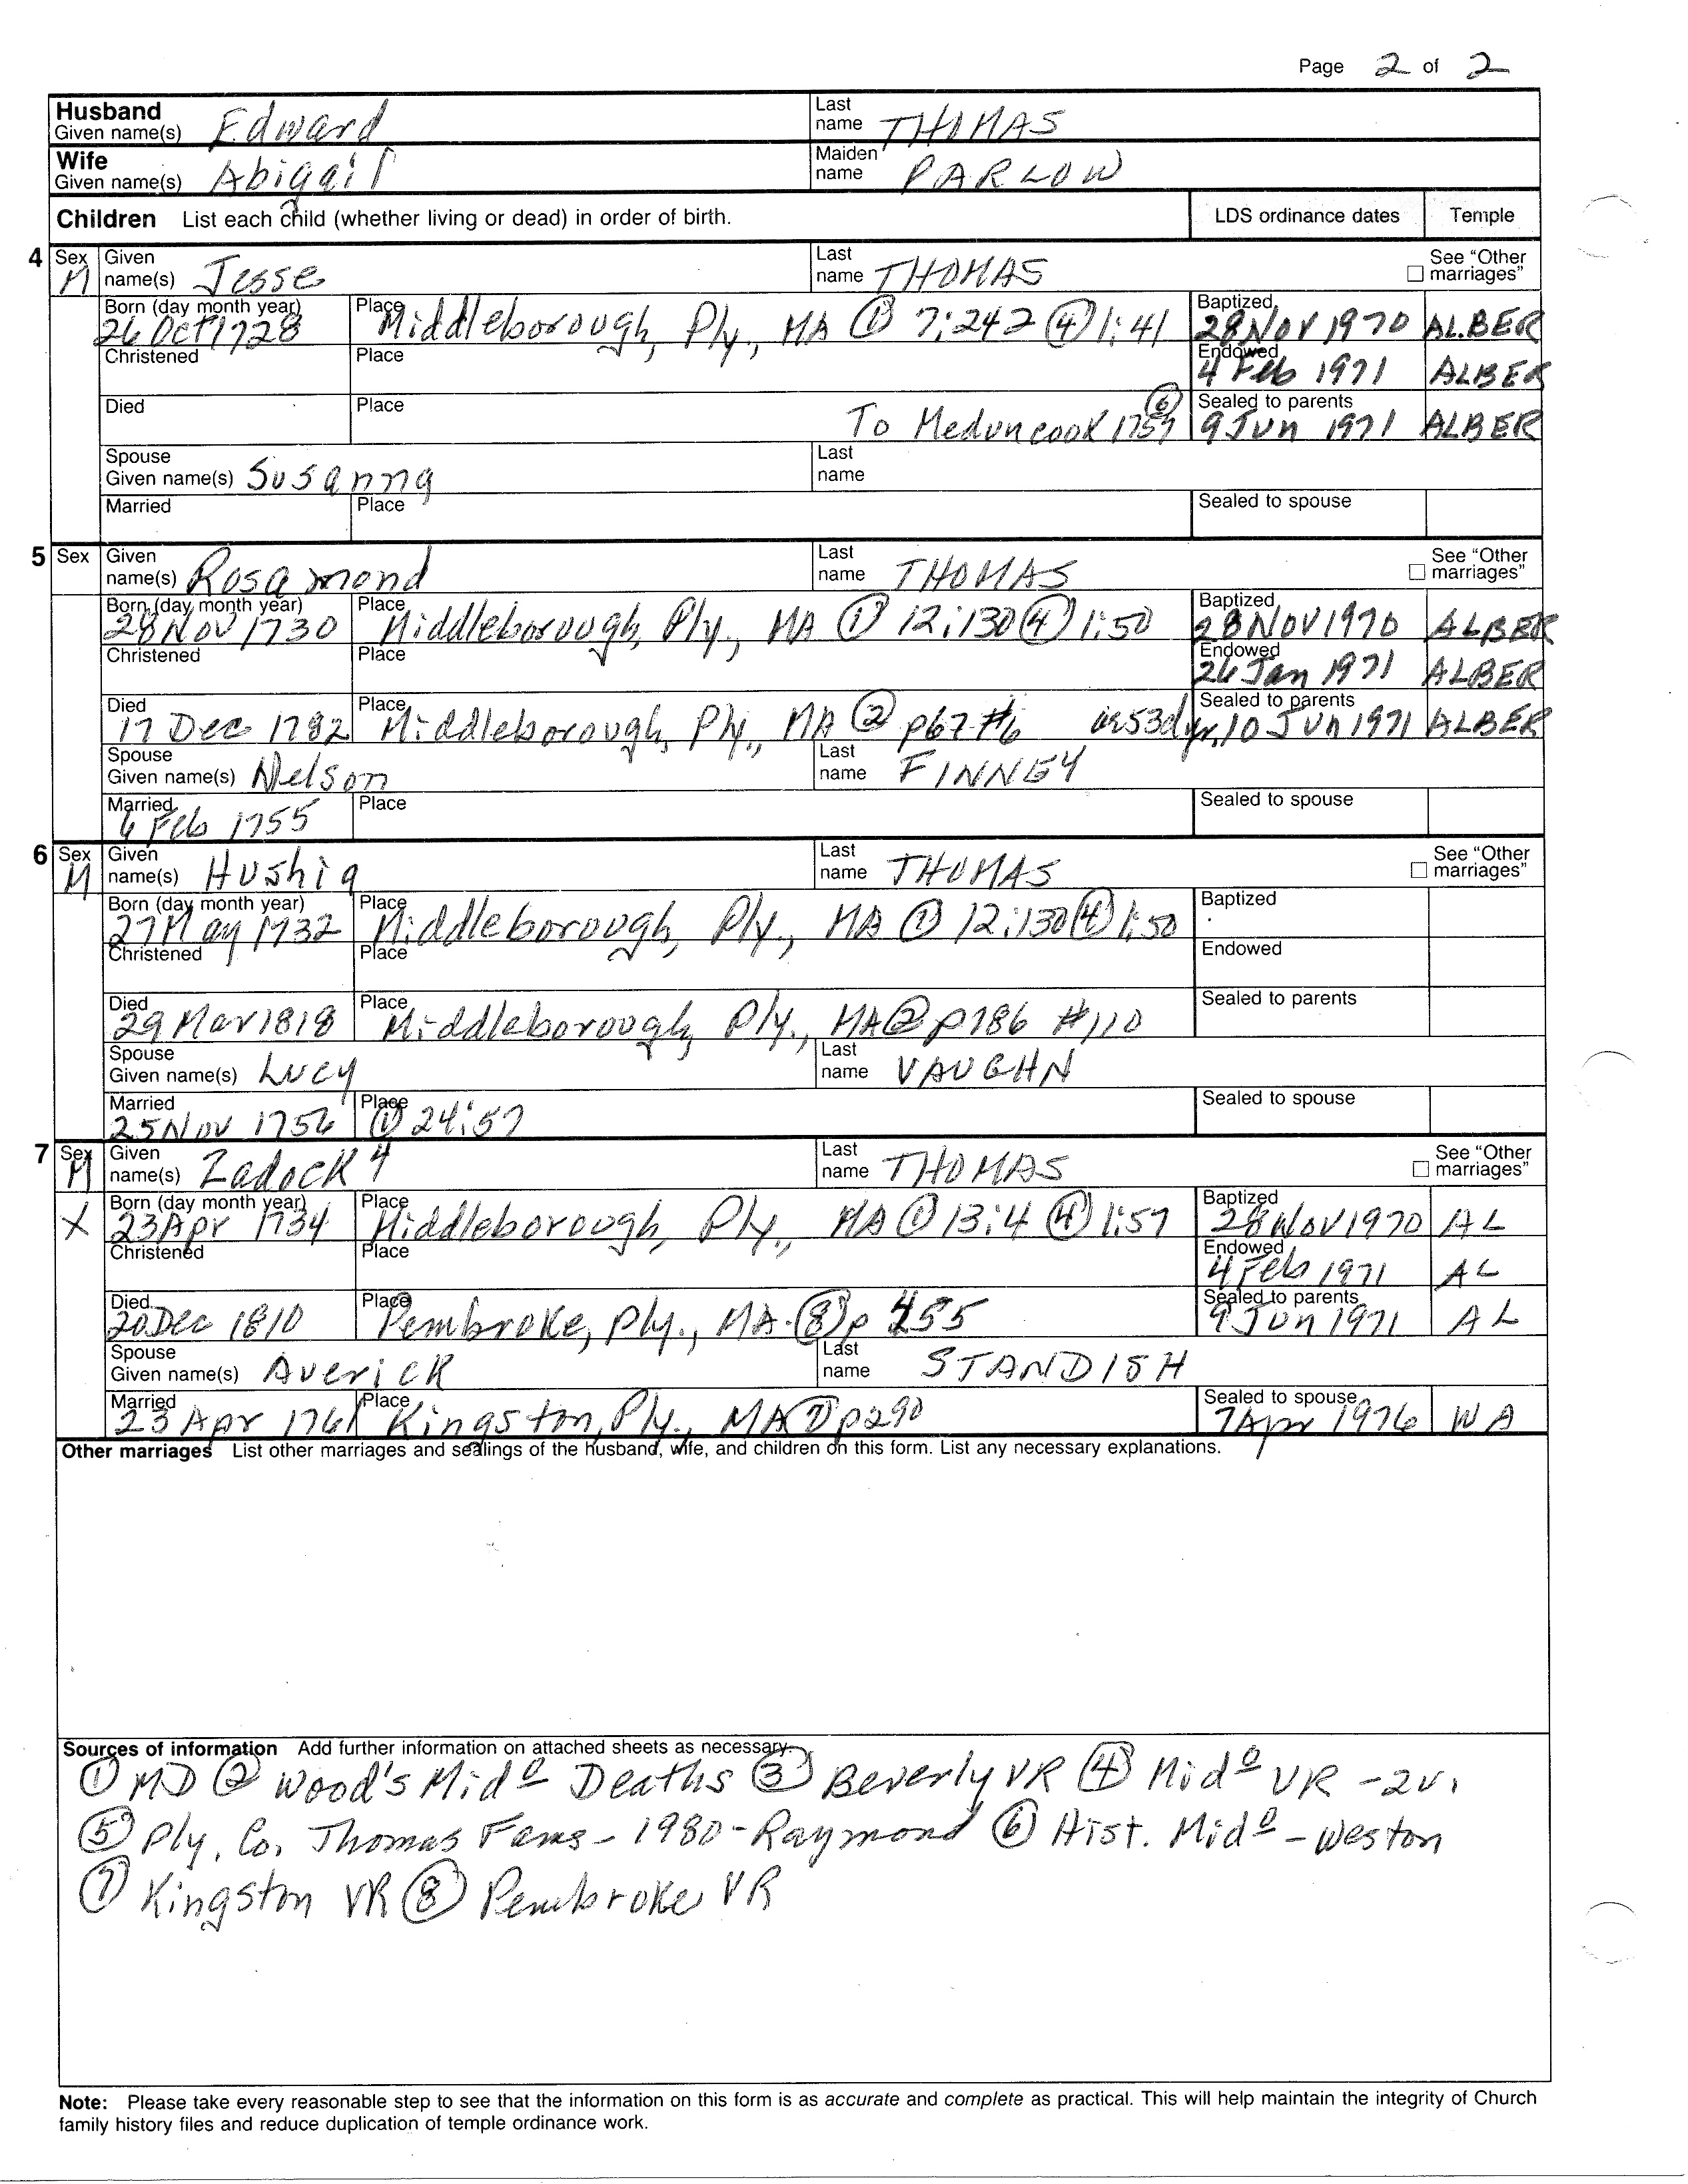 Page 2 of 2
Husband Given name(s) Edward Last name THOMAS
Wife Given name(s) Abigail Maiden name PARLOW
Children List each child (whether living or dead) in order of birth. LDS ordinance dates Temple
4 Sex M Given name(s) Jesse Last name THOMAS See "Other marriages"
Born (day month year) 26 Oct 1728 Place Middleborough, Ply., MA ① 7:242 ④ 1:41 Baptized 28 Nov 1970 ALBER
Christened Place Endowed 4 Feb 1971 ALBER
Died Place To Meduncook 1757 ⑥ Sealed to parents 9 Jun 1971 ALBER
Spouse Given name(s) Susanna Last name
Married Place Sealed to spouse
5 Sex Given name(s) Rosamond Last name THOMAS See "Other marriages"
Born (day month year) 28 Nov 1730 Place Middleborough, Ply., MA ① 12:130 ④ 1:50 Baptized 28 Nov 1970 ALBER
Christened Place Endowed 26 Jan 1971 ALBER
Died 17 Dec 1782 Place Middleborough, Ply., MA ② p67 #6 in 53d yr. Sealed to parents 10 Jun 1971 ALBER
Spouse Given name(s) Nelson Last name FINNEY
Married 6 Feb 1755 Place Sealed to spouse
6 Sex M Given name(s) Hushia Last name THOMAS See "Other marriages"
Born (day month year) 27 May 1732 Place Middleborough, Ply., MA ① 12:130 ④ 1:50 Baptized
Christened Place Endowed
Died 29 Mar 1818 Place Middleborough, Ply., MA ② p186 #110 Sealed to parents
Spouse Given name(s) Lucy Last name VAUGHN
Married 25 Nov 1756 Place ① 24:57 Sealed to spouse
7 Sex M Given name(s) Zadock 4 Last name THOMAS See "Other marriages"
X Born (day month year) 23 Apr 1734 Place Middleborough, Ply., MA ① 13:4 ④ 1:57 Baptized 28 Nov 1970 AL
Christened Place Endowed 4 Feb 1971 AL
Died 20 Dec 1810 Place Pembroke, Ply., MA. ⑧ p 455 Sealed to parents 9 Jun 1971 AL
Spouse Given name(s) Averick Last name STANDISH
Married 23 Apr 1761 Place Kingston, Ply., MA ⑦ p290 Sealed to spouse 7 Apr 1976 WA
Other marriages List other marriages and sealings of the husband, wife, and children on this form. List any necessary explanations.
Sources of information Add further information on attached sheets as necessary.
① MD ② Wood's Midº Deaths ③ Beverly VR ④ Midº VR - 2v.
⑤ Ply. Co. Thomas Fams - 1980 - Raymond ⑥ Hist. Midº - Weston
⑦ Kingston VR ⑧ Pembroke VR
Note: Please take every reasonable step to see that the information on this form is as accurate and complete as practical. This will help maintain the integrity of Church
family history files and reduce duplication of temple ordinance work.